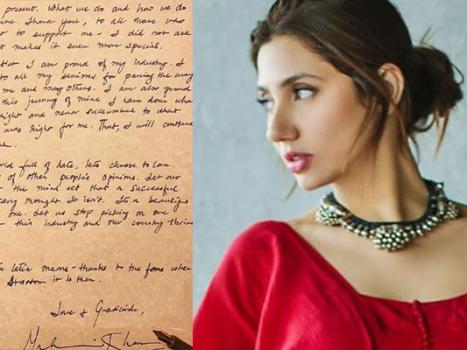 present. What we do and how we do
Thank you, to all those who
to support me - I did not ask
makes it even more special.
I am proud of my industry. I
to all my seniors for paving the way
me and many others. I am also proud
this journey of mine. I have done what
right and never succumbed to what
was right for me. That, I will continue
full of hate, lets choose to love.
of other people's opinions. Let our
the mind set that a successful
scary thought. It isn't. Its a beautiful
one. Let us stop picking on one
this industry and our country thrive
latin meme - thanks to the fans when
it is them.
Love & Gratitude,